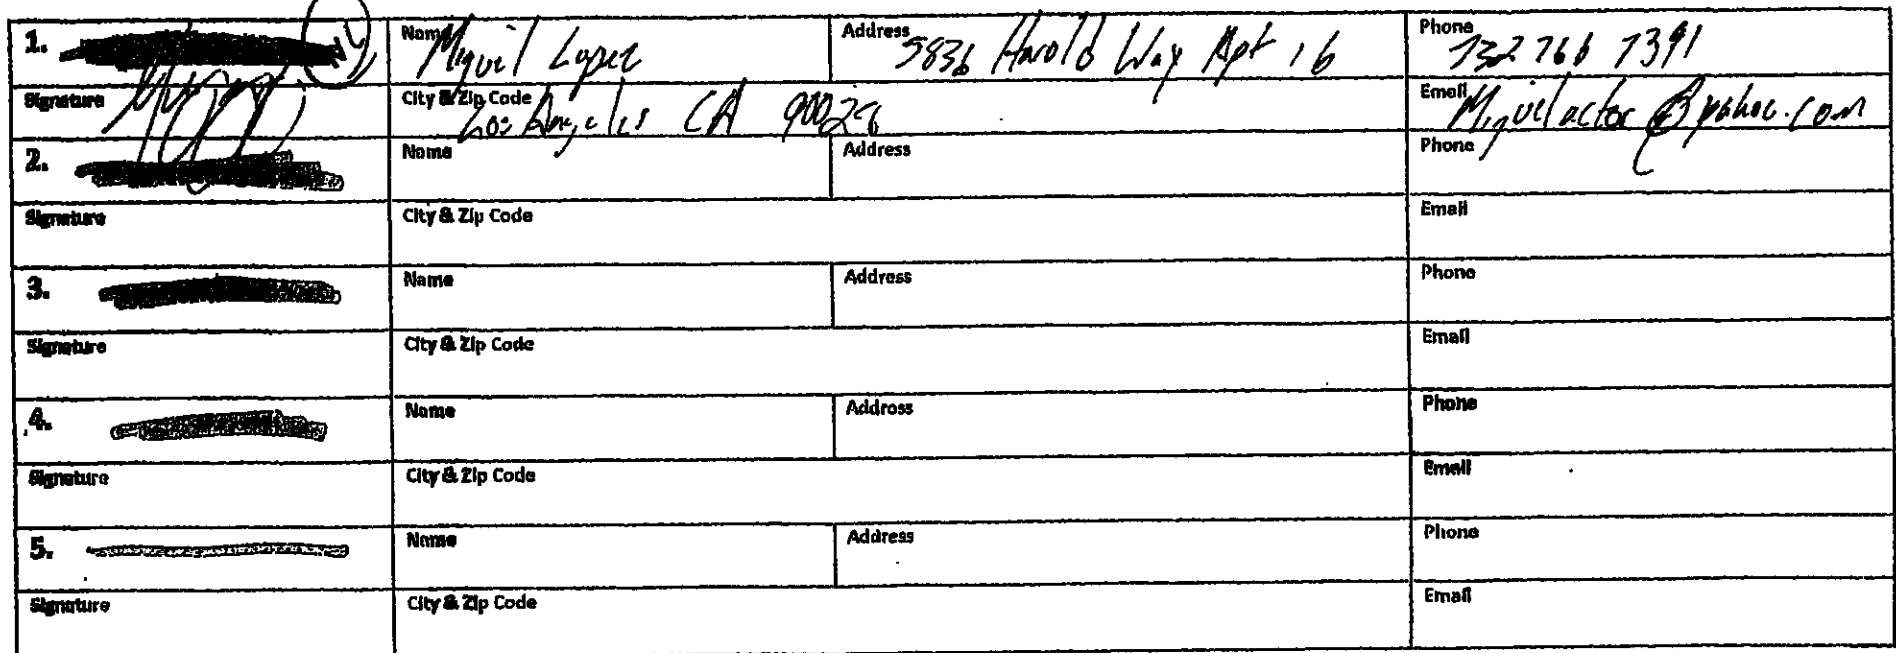 1. Name Miguel Lopez Address 5836 Harold Way Apt 16 Phone 732 766 7391
Signature City & Zip Code Los Angeles CA 90028 Email Miguelactor@yahoo.com
2. Name Address Phone
Signature City & Zip Code Email
3. Name Address Phone
Signature City & Zip Code Email
4. Name Address Phone
Signature City & Zip Code Email
5. Name Address Phone
Signature City & Zip Code Email